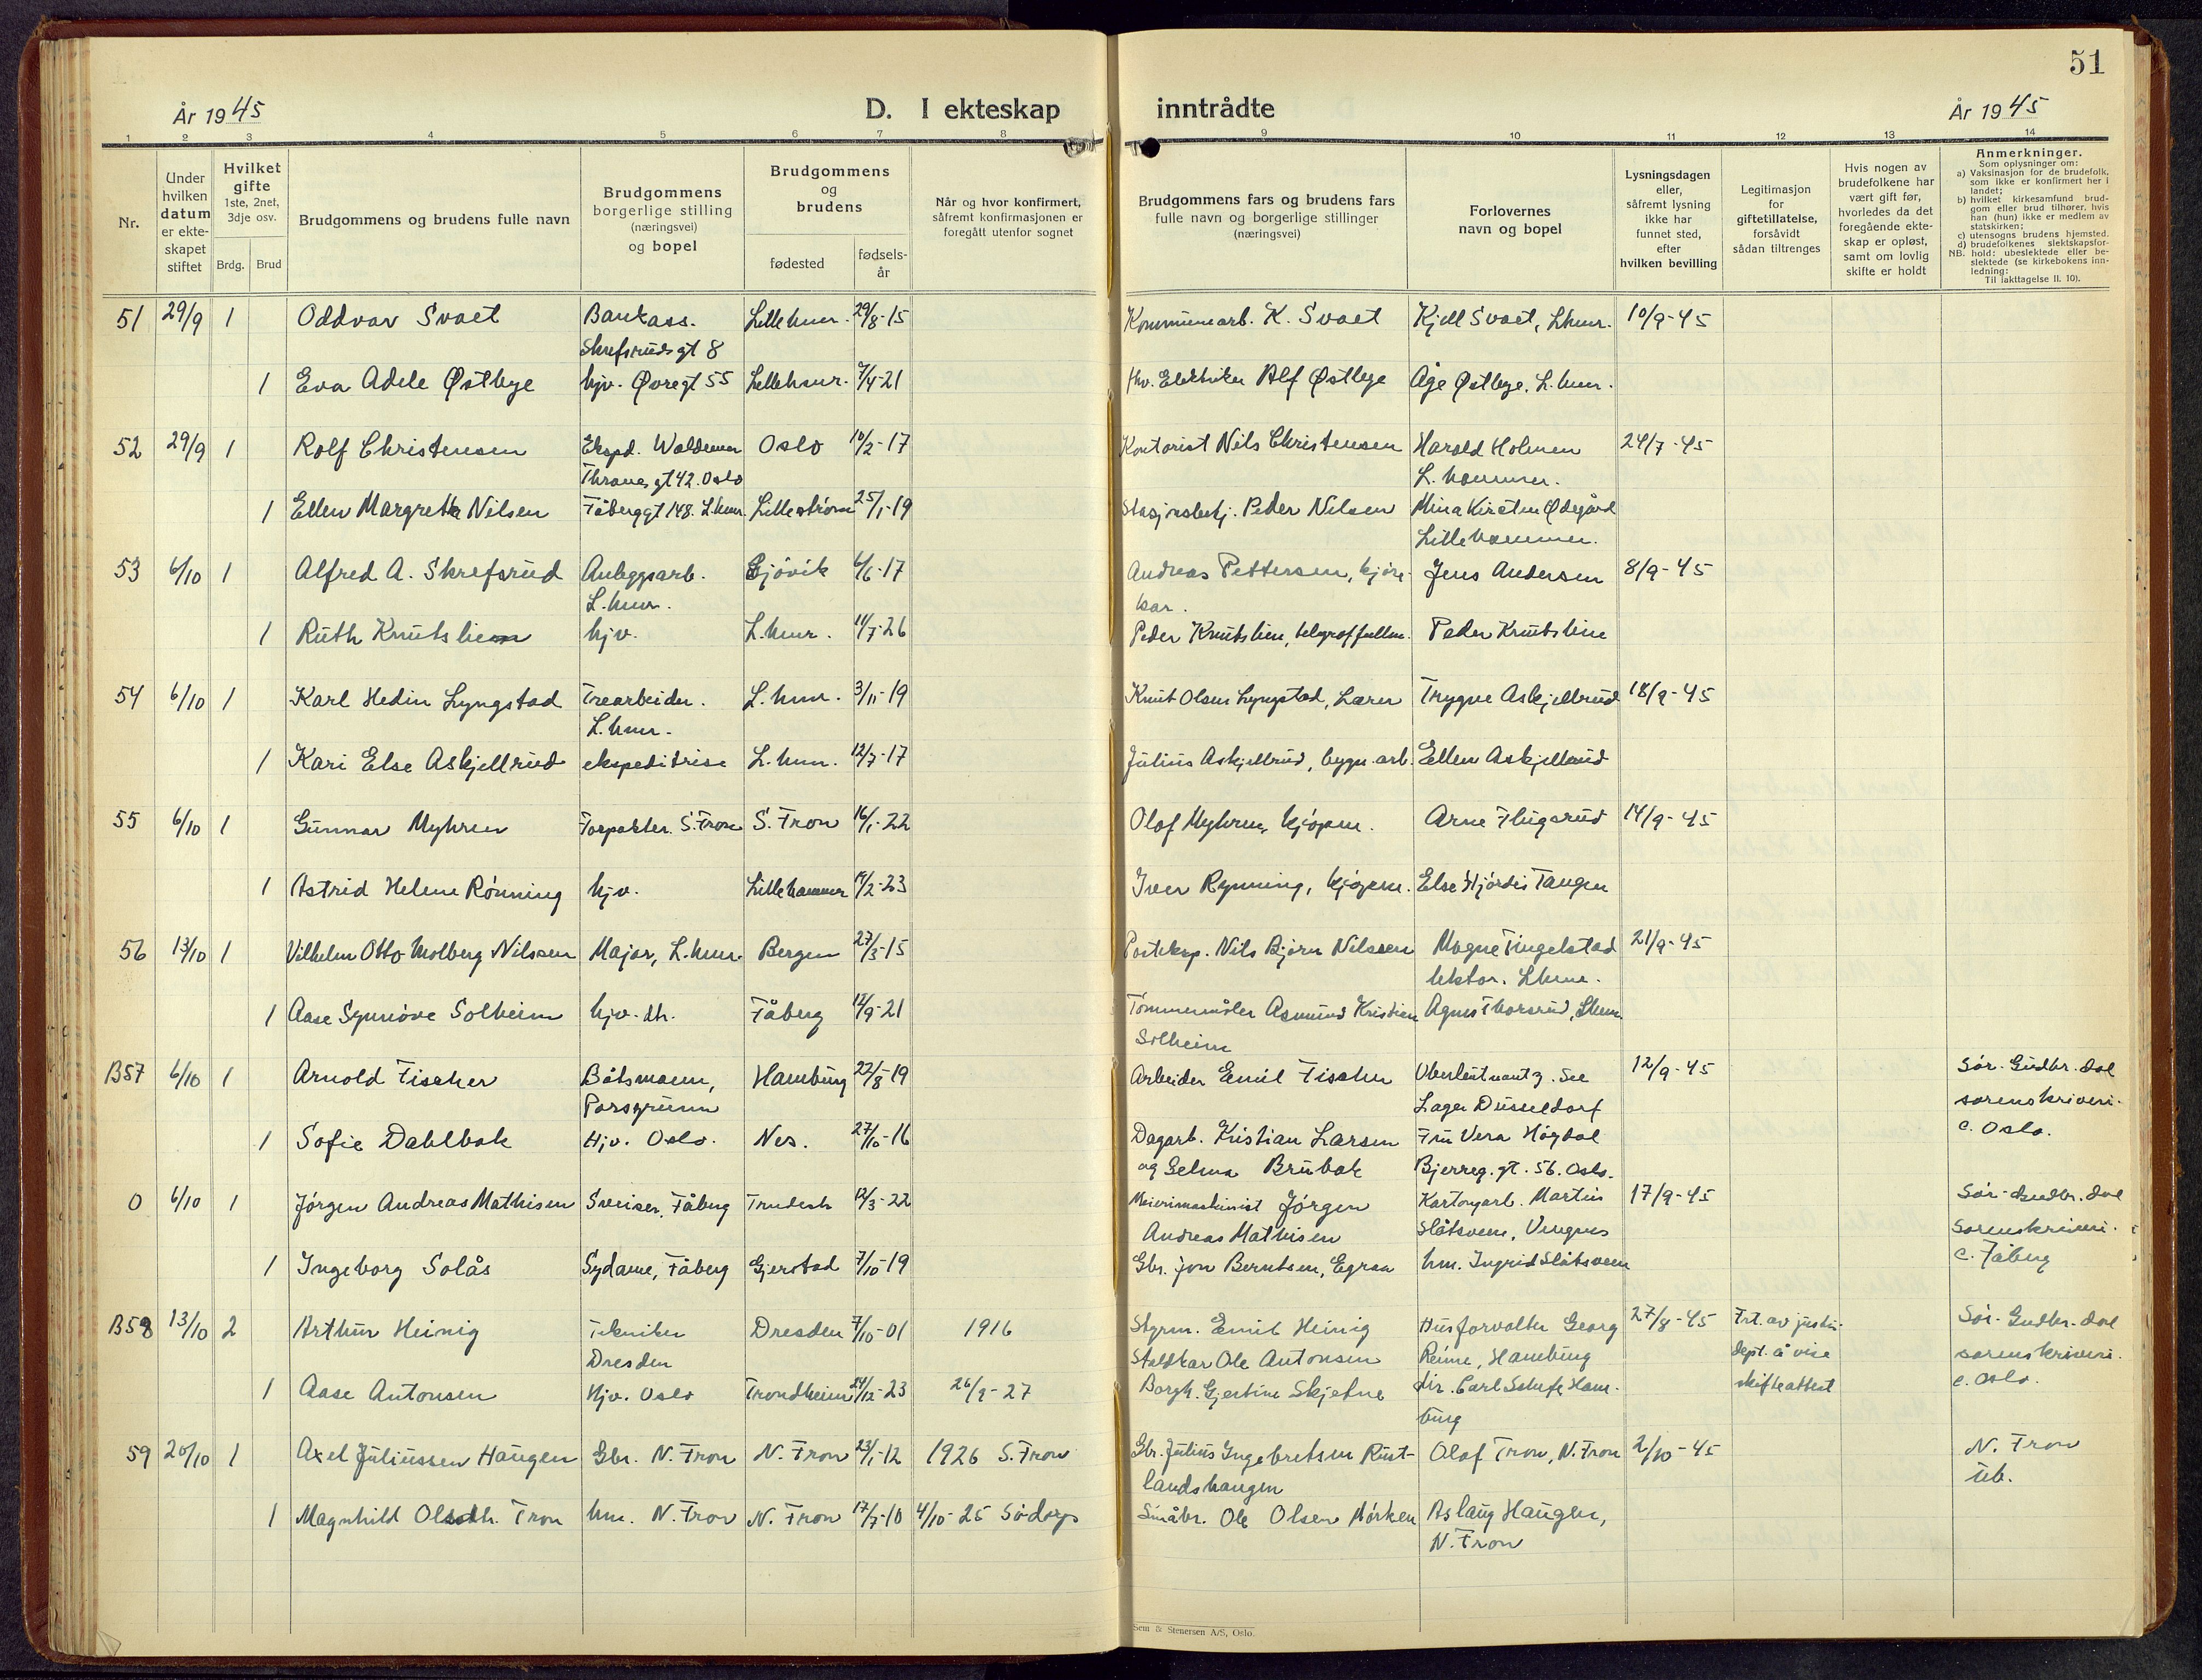 51
År 1945
D. I ekteskap inntrådte
År 1945
1 2 3 4 5 6 7 8 9 10 11 12 13 14
Nr.
Under hvilken datum er ekteskapet stiftet
Hvilket gifte 1ste, 2net, 3dje osv.
Brdg. Brud
Brudgommens og brudens fulle navn
Brudgommens borgerlige stilling (næringsvei) og bopel
Brudgommens og brudens
fødested
fødsels-år
Når og hvor konfirmert, såfremt konfirmasjonen er foregått utenfor sognet
Brudgommens fars og brudens fars fulle navn og borgerlige stillinger (næringsvei)
Forlovernes navn og bopel
Lysningsdagen eller, såfremt lysning ikke har funnet sted, efter hvilken bevilling
Legitimasjon for giftetillatelse, forsåvidt sådan tiltrenges
Hvis nogen av brudefolkene har vært gift før, hvorledes da det foregående ekteskap er opløst, samt om lovlig skifte er holdt
Anmerkninger.
Som oplysninger om:
a) Vaksinasjon for de brudefolk, som ikke er konfirmert her i landet;
b) hvilket kirkesamfund brudgom eller brud tilhører, hvis han (hun) ikke er medlem av statskirken;
c) utensogns brudens hjemsted.
d) brudefolkenes slektskapsforhold: ubeslektede eller beslektede (se kirkebokens innledning:
NB.
Til Iakttagelse II. 10).
51 29/9 1 Oddvar Svaet Bankass. Lillehmr. 29/8-15 Kommunearb. K. Svaet Kjell Svaet, Lhmr. 10/9-45
Skrefsrudsgt 8
1 Eva Adele Østbye hjv. Øvregt 55 Lillehmr. 7/4-21 Hv. Elektriker Alf Østbye Åge Østbye, L.hmr.
52 29/9 1 Rolf Christensen Ekspd. Waldemar Oslo 10/2-17 Kontorist Nils Christensen Harald Holmen 24/7-45
Thranes gt 42. Oslo L. hammer.
1 Ellen Margrethe Nilsen Fåberggt 148. L.hmr. Lillestrøm 25/1-19 Stasjonsbetj. Peder Nilsen Mina Kirsten Ødegård
Lillehammer.
53 6/10 1 Alfred A. Skrefsrud Anleggsarb. Gjövik 6/6-17 Andreas Pettersen, kjøre- Jens Andersen 8/9-45
L.hmr. kar.
1 Ruth Knutslien hjv. L.hmr. 11/7-26 Peder Knutslien, telegraffullm. Peder Knutslien
54 6/10 1 Karl Hedin Lyngstad Trearbeider. L.hmr. 3/11-19 Knut Olsen Lyngstad, Lærer Trygve Askjellrud 18/9-45
L.hmr.
1 Kari Else Askjellrud ekspeditrise L.hmr. 12/7-17 Julius Askjellrud, bygn.arb. Ellen Askjellrud
55 6/10 1 Gunnar Myhren Forpakter. S.Fron S. Fron 16/1-22 Olaf Myhren, kjöpm. Arne Flugsrud 14/9-45
1 Astrid Helene Rönning hjv. Lillehammer 14/2-23 Iver Rynning, kjöpm. Else Hjördis Tangen
56 13/10 1 Vilhelm Otto Molberg Nilssen Major, L.hmr. Bergen 27/3-15 Posteksp. Nils Bjørn Nilssen Magne Tingelstad 21/9-45
lektor. Lhmr.
1 Aase Synnöve Solheim hjv. dtr. Fåberg 12/9-21 Tømmermåler Asmund Kristian Agnes Thorsrud, Lhmr.
Solheim
B57 6/10 1 Arnold Fischer Båtsmann, Hamburg 22/8-19 Arbeider Emil Fischer Oberleutnant z. See 12/9-45 Sør-Gudbr.dal
Porsgrunn Lager Düsseldorf sorenskriveri.
1 Sofie Dahlbak Hjv. Oslo. Nes. 27/10-16 Dagarb. Kristian Larsen Fru Vera Högdal c. Oslo.
og Selma Brubak Bjerreg.gt. 56. Oslo.
0 6/10 1 Jörgen Andreas Mathisen Sveiser, Fåberg 12/3-22 Meierimaskinist Jörgen Kartongarb. Martin 17/9-45 Sør-Gudbr.dal
Andreas Mathisen Slåtsveen, Vingnes sorenskriveri.
1 Ingeborg Solås Sydame, Fåberg Gjerstad 7/10-19 Gbr. Jon Berntsen, hm. Ingrid Slåtsveen c. Fåberg
B58 13/10 2 Arthur Heinig Tekniker Dresden 7/10-01 1916 Styrm. Emil Heinig Husforvalter Georg 27/8-45 Frt. av justis- Sør-Gudbr.dal
Dresden Staldkar Ole Antonsen Hamburg dept. å vise sorenskriveri.
1 Aase Antonsen Hjv. Oslo Trondheim 24/12-23 26/9-27 Borgh. Gjertine Skjefne dir. Carl Ham- skifteattest c. Oslo.
burg
59 20/10 1 Axel Juliussen Haugen Gbr. N. Fron N. Fron 23/1-12 1926 S. Fron Gbr. Julius Ingebretsen Rust- Olaf Tron, N. Fron 2/10-45 N. Fron
landshaugen ub.
1 Magnhild Olsdtr. Tron hm. N. Fron N. Fron 17/7-10 4/10-25 Södorp Småbr. Ole Olsen Mörken Aslaug Haugen,
N. Fron
Sem & Stenersen A/S, Oslo.